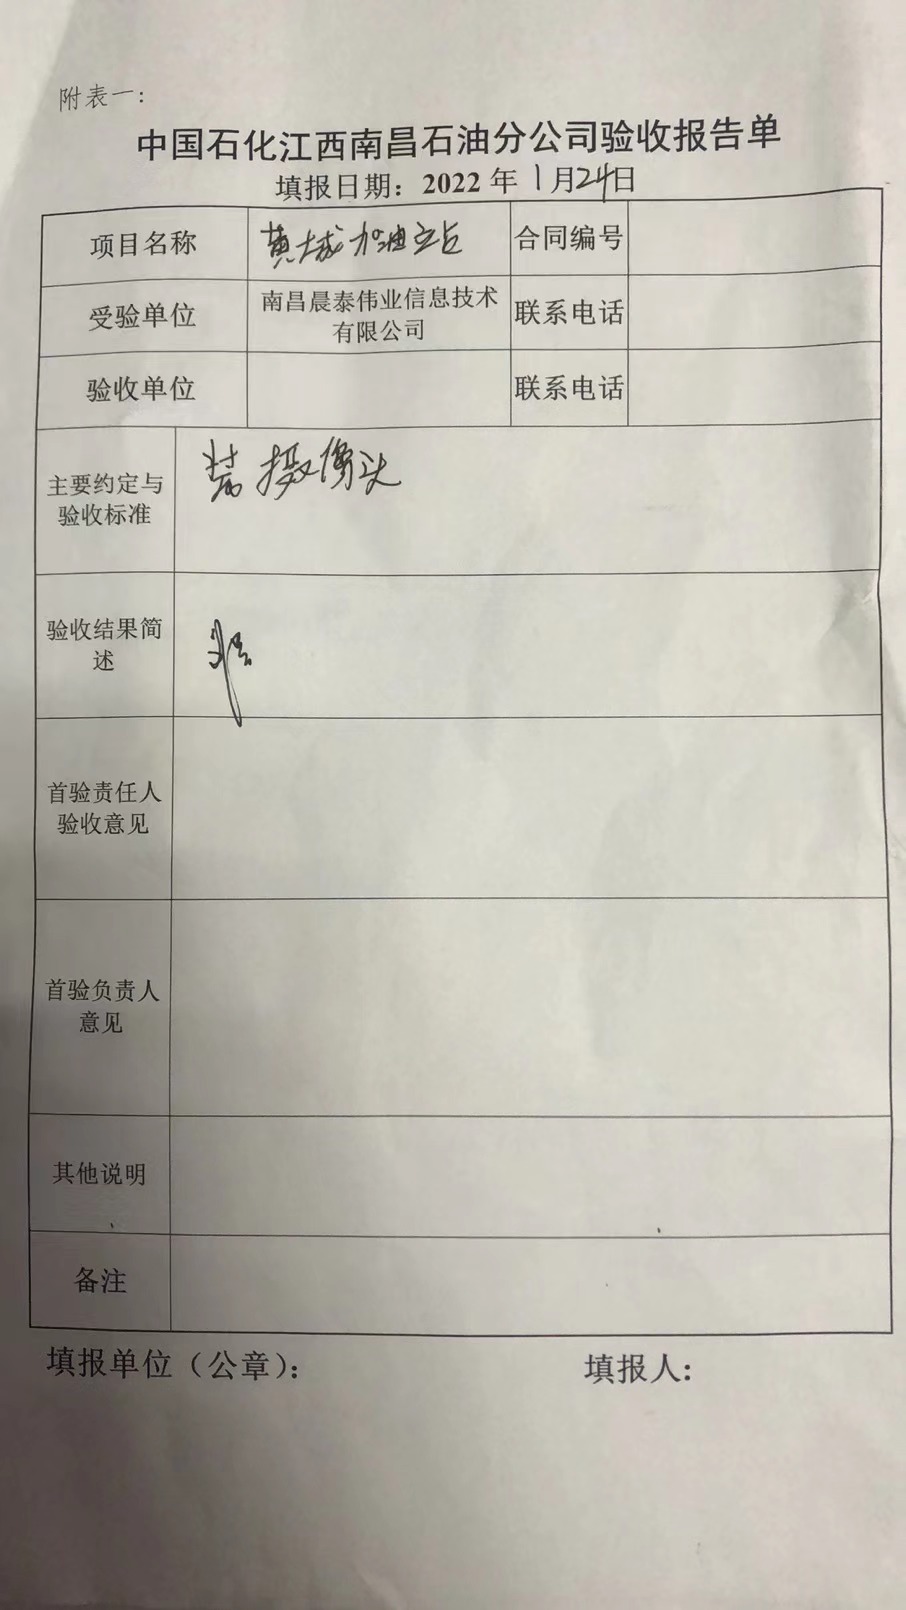 附表一:
中国石化江西南昌石油分公司验收报告单
填报日期：2022 年 1月24日
项目名称 黄城加油站 合同编号
受验单位 南昌晨泰伟业信息技术 联系电话
有限公司
验收单位 联系电话
装摄像头
主要约定与
验收标准
验收结果简
述
首验责任人
验收意见
首验负责人
意见
其他说明
备注
填报单位（公章）: 填报人: